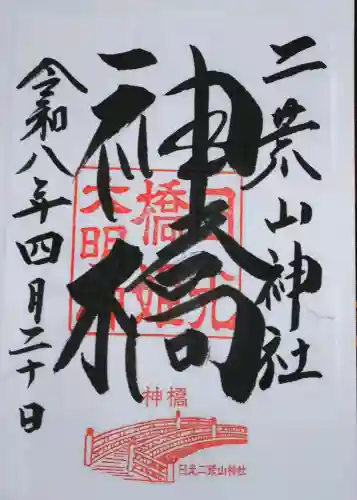 二荒山神社
神橋
令和八年四月二十日
日光
橋姫
大明神
神橋
日光二荒山神社